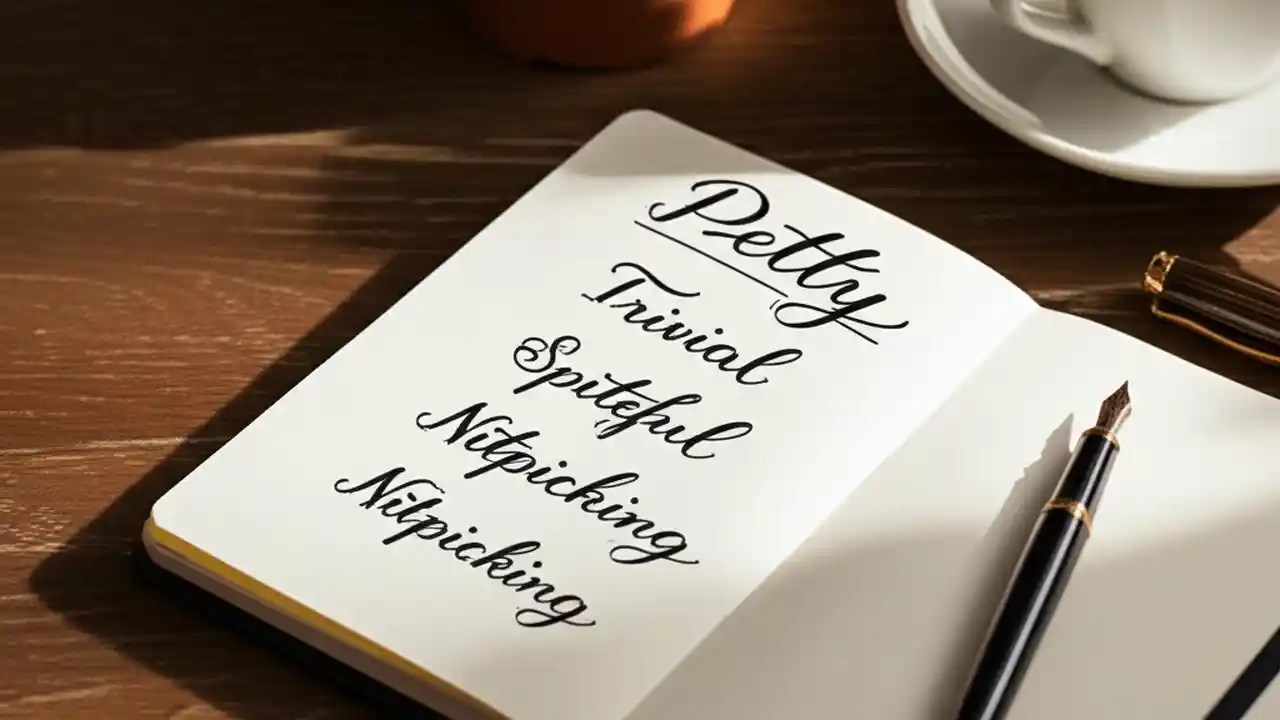 Petty
Trivial
Spiteful
Nitpicking
Nitpicking